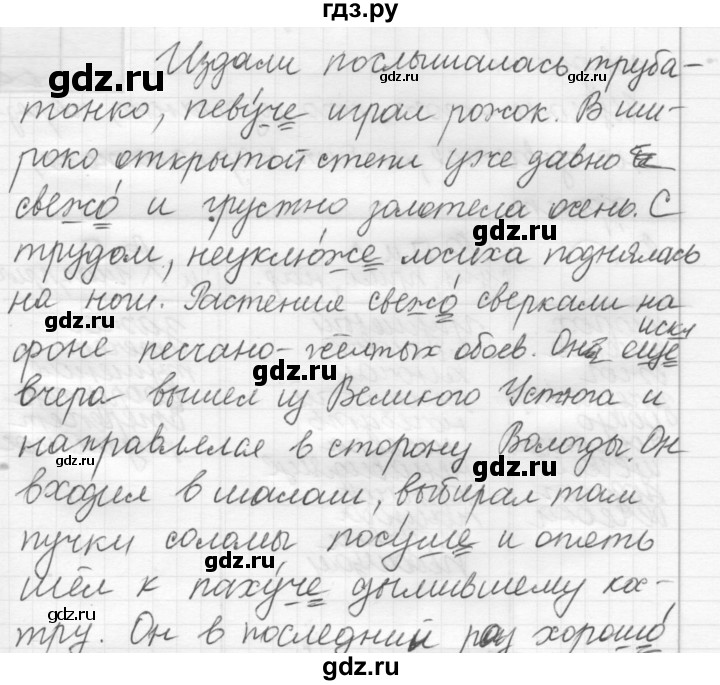 гдз.ру
Издали послышалась труба-
тонко, певуче играл рожок. В ши-
роко открытой степи уже давно
свежо и грустно золотела осень. С
трудом, неуклюже лосиха поднялась
на ноги. Растения свежо сверкали на
иск
фоне песчано-желтых обоев. Он ещё
вчера вышел из Великого Устюга и
направлялся в сторону Вологды. Он
входил в шалаш, выбирал там
пучки соломы посуше и опять
шёл к пахуче дымившему ко-
тру. Он в последний раз хорошо
gdz.ru
gdz.ru
gdz.ru
gdz.ru
gdz.ru
gdz.ru
gdz.ru
gdz.ru
gdz.ru
gdz.ru
gdz.ru
gdz.ru
gdz.ru
gdz.ru